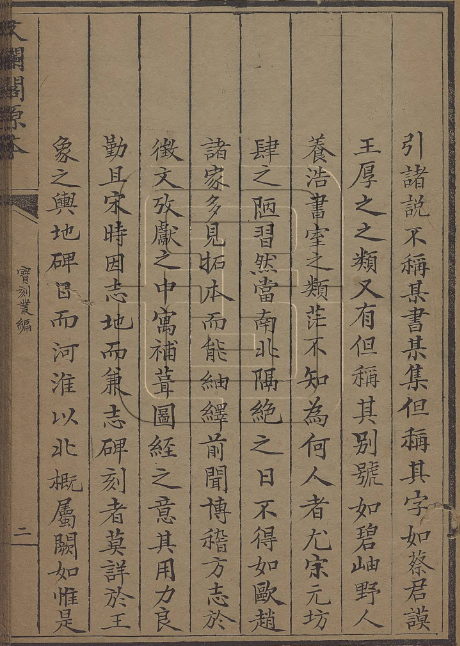 引諸說不稱某書某集但稱其字如蔡君謨
王厚之之類又有但稱其別號如碧岫野人
養浩書室之類茫不知為何人者尤宋元坊
肆之陋習然當南北隔絶之日不得如歐趙
諸家多見拓本而能紬繹前聞博稽方志於
徴文攷獻之中寓補葺圖經之意其用力良
勤且宋時因志地而兼志碑刻者莫詳於王
象之輿地碑目而河淮以北概屬闕如惟是
寶刻叢編
二
文瀾閣原本